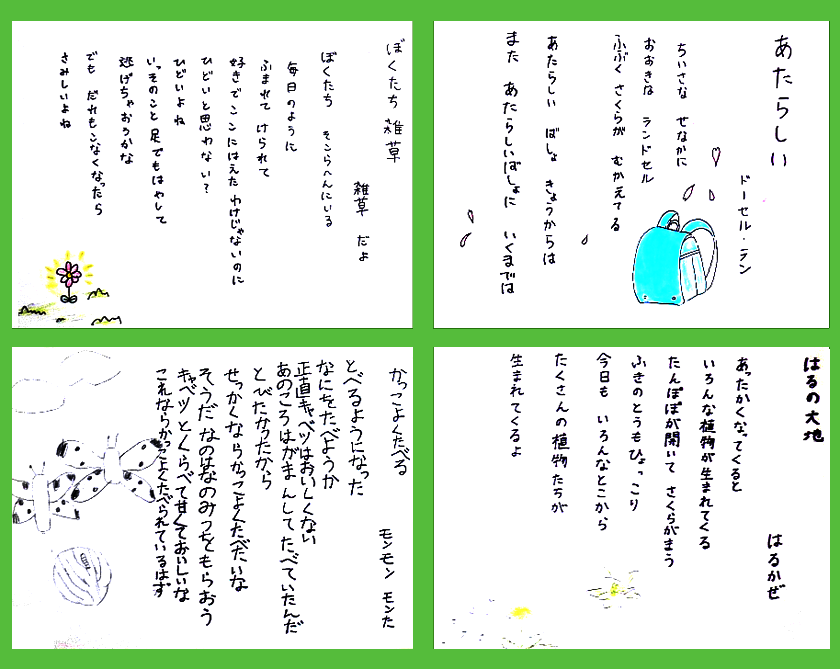 ぼくたち 雑草
雑草 だよ
ぼくたち そこらへんにいる
毎日のように
ふまれて けられて
好きでここにはえた わけじゃないのに
ひどいと思わない?
ひどいよね
いっそのこと 足でもはやして
逃げちゃおうかな
でも だれもこなくなったら
さみしいよね
あたらしい
ドーセル・ラン
ちいさな せなかに
おおきな ランドセル
ふぶく さくらが むかえてる
あたらしい ばしょ きょうからは
また あたらしいばしょに いくまでは
かっこよくたべる
モンモン モンた
とべるようになった
なにをたべようか
正直キャベツはおいしくない
あのころはがまんしてたべていたんだ
とびたかったから
せっかくならかっこよくたべたいな
そうだ なのはなのみつをもらおう
キャベツとくらべて甘くておいしいな
これならかっこよくたべられているはず
はるの大地
はるかぜ
あったかくなってくると
いろんな植物が生まれてくる
たんぽぽが開いて さくらがまう
ふきのとうもひょっこり
今日も いろんなとこから
たくさんの植物たちが
生まれてくるよ